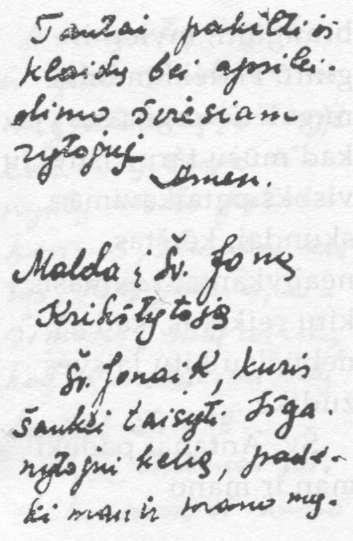 Tautai pakilti iš
klaidų bei apsilei-
dimo šviesiam
rytojuj
Amen.
Malda į Šv. Joną
Krikštytoją
Šv. Jonai K, kuris
šaukei taisyti
nytojui kelią, padė-
ki man ir mano my-